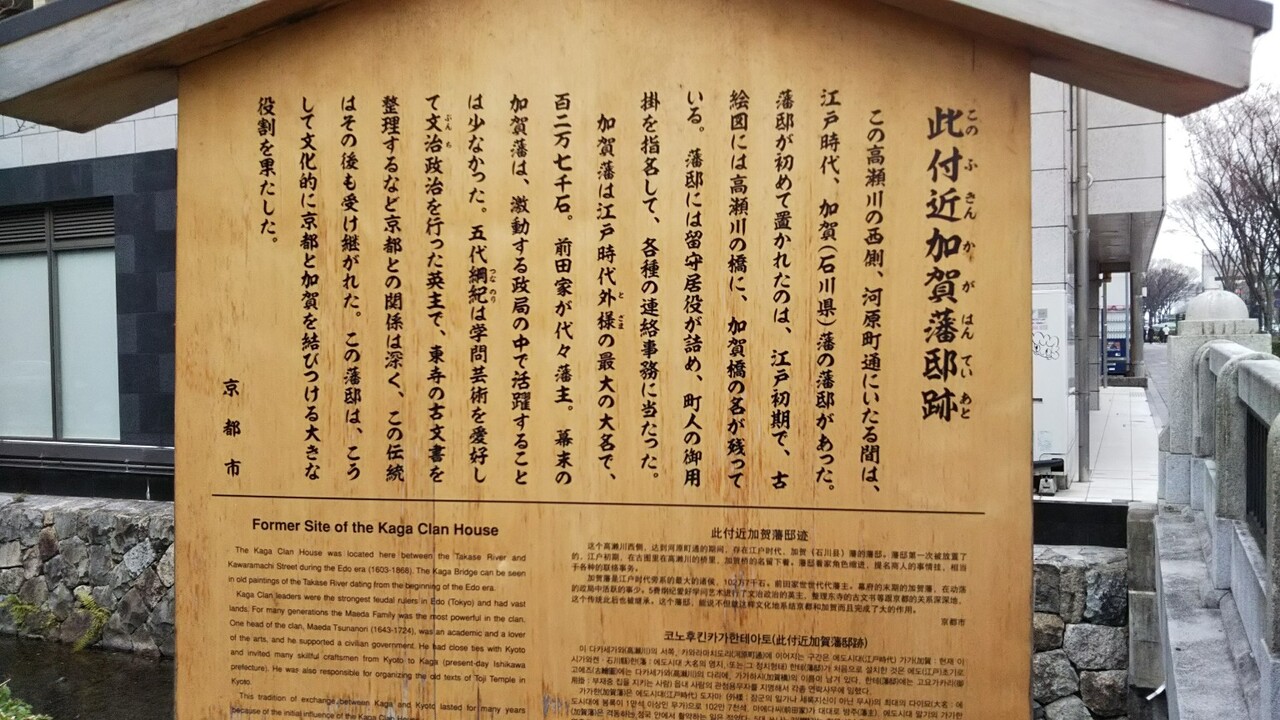 此付近加賀藩邸跡
この ふ きん か が はん てい あと
この高瀬川の西側、河原町通にいたる間は、
江戸時代、加賀(石川県)藩の藩邸があった。
藩邸が初めて置かれたのは、江戸初期で、古
絵図には高瀬川の橋に、加賀橋の名が残って
いる。藩邸には留守居役が詰め、町人の御用
掛を指名して、各種の連絡事務に当たった。
加賀藩は江戸時代外様の最大の大名で、
と ざま
百二万七千石。前田家が代々藩主。幕末の
加賀藩は、激動する政局の中で活躍すること
は少なかった。五代綱紀は学問芸術を愛好し
つな のり
て文治政治を行った英主で、東寺の古文書を
ぶん ち
整理するなど京都との関係は深く、この伝統
はその後も受け継がれた。この藩邸は、こう
して文化的に京都と加賀を結びつける大きな
役割を果たした。
京都市
Former Site of the Kaga Clan House
The Kaga Clan House was located here between the Takase River and
Kawaramachi Street during the Edo era (1603-1868). The Kaga Bridge can be seen
in old paintings of the Takase River dating from the beginning of the Edo era.
Kaga Clan leaders were the strongest feudal rulers in Edo (Tokyo) and had vast
lands. For many generations the Maeda Family was the most powerful in the clan.
One head of the clan, Maeda Tsunanori (1643-1724), was an academic and a lover
of the arts, and he supported a civilian government. He had close ties with Kyoto
and invited many skillful craftsmen from Kyoto to Kaga (present-day Ishikawa
prefecture). He was also responsible for organizing the old texts of Toji Temple in
Kyoto.
This tradition of exchange between Kaga and Kyoto lasted for many years
because of the initial influence of the Kaga
此付近加贺藩邸迹
这个高濑川西侧，达到河原町通的期间，存在江户时代、加贺（石川县）藩的藩邸。藩邸第一次被放置了
的，江户初期，在古图里在高濑川的桥里，加贺桥的名留下着。藩邸看家角色缩进，提名商人的事情挂，相当
于各种的联络事务。
加贺藩是江户时代旁系的最大的诸侯，102万7千石。前田家世世代代藩主。幕府的末期的加贺藩，在动荡
的政局中活跃的事少。
京都市
코노후킨카가한테아토(此付近加賀藩邸跡)